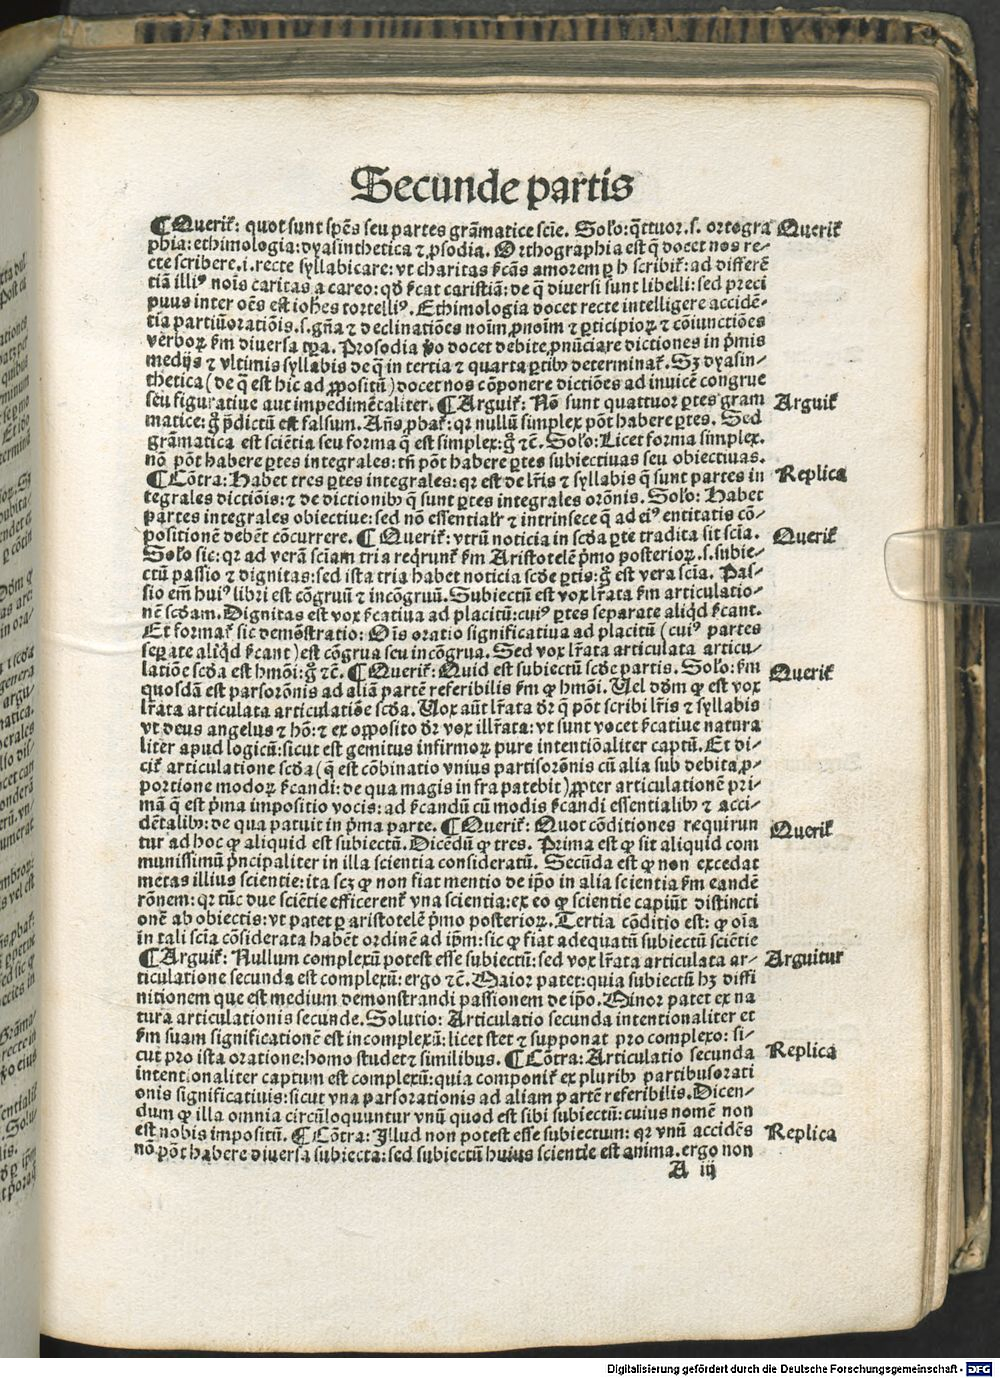 Secunde partis
¶Querit᷑: quot sunt sp̄es seu partes grāmatice scīe. Solo: q̄ttuor.s. ortogra
phia: ethimologia: dyasinthetica ⁊ ꝓsodia. Orthographia est q̄ docet nos re-
cte scribere.i.recte syllabicare: vt charitas
tiā illiꝰ noīs caritas a careo: de q̄ diuersi sunt libelli: sed preci
puus inter oēs est iohēs tortelliꝰ. Ethimologia docet recte intelligere accidē-
tia partiū oratiōis.s.gn̄a ⁊ declinatiōes noīm ꝓnoīm ⁊ ꝑticipioꝝ ⁊ cōiunctiōes
verboꝝ diuersa tꝑa. Prosodia ꝟo docet debite ꝓnūciare dictiones in p̄mis
medijs ⁊ vltimis syllabis de q̄ in tertia ⁊ quarta ꝑtibꝫ determinat᷑. Sꝫ dyasin-
thetica (de q̄ est hic ad ꝓpositū) docet nos cōponere dictiōes ad inuicē congrue
seu figuratiue aut impedimētaliter. ¶Arguit᷑: Nō sunt quattuor ꝑtes gram
matice: g̊ p̄dictū est falsum. Añs ꝓbat᷑: qꝛ nullū simplex pōt habere ꝑtes. Sed
grāmatica est sciētia seu forma q̄ est simplex: g̊ ⁊c̄. Solo: Licet forma simplex.
nō pōt habere ꝑtes integrales: tn̄ pōt habere ꝑtes subiectiuas seu obiectiuas.
¶Cōtra: Habet tres ꝑtes integrales: qꝛ est de lr̄is ⁊ syllabis q̄ sunt partes in
tegrales dictiōis: ⁊ de dictionibꝫ q̄ sunt ꝑtes integrales orōnis. Solo: Habet
partes integrales obiectiue: sed nō essentialr̄ ⁊ intrinsece q̄ ad eiꝰ entitatis cō-
positionē debēt cōcurrere. ¶Querit᷑: vtrū noticia in scd̄a ꝑte tradita sit scīa.
Solo sic: qꝛ ad verā scīam tria reqrunt᷑ Aristotelē p̄mo posterioꝝ.s.subie-
ctū passio ⁊ dignitas: sed ista tria habet noticia scd̄e ꝑtis: g̊ est vera scīa. Pas-
sio em̄ huiꝰ libri est cōgruū ⁊ incōgruū. Subiectū est vox lr̄ata articulatio-
nē scd̄am. Dignitas est vox ad placitū: cuiꝰ ꝑtes separate aliqd
Et format᷑ sic demōstratio: Oīs oratio significatiua ad placitū (cuiꝰ partes
seꝑate aliqd) est cōgrua seu incōgrua. Sed vox lr̄ata articulata articu-
latiōe scd̄a est hmōi: g̊ ⁊c̄. ¶Querit᷑: Quid est subiectū scd̄e partis. Solo:
quosdā est pars orōnis ad aliā partē referibilis hmōi. Uel est vox
lr̄ata articulata articulatiōe scd̄a. Uox aūt lr̄ata dr̄ q̄ pōt scribi lr̄is ⁊ syllabis
vt deus angelus ⁊ hō: ⁊ ex opposito dr̄ vox illr̄ata: vt sunt voces natura
liter apud logicū: sicut est gemitus infirmoꝝ pure intentiōaliter captū. Et di-
cit᷑ articulatione scd̄a (q̄ est cōbinatio vnius partis orōnis cū alia sub debita ꝓ-
portione modoꝝ: de qua magis infra patebit) ꝓpter articulationē pri-
mā q̄ est p̄ma impositio vocis: cū modis essentialibꝫ ⁊ acci-
dētalibꝫ: de qua patuit in p̄ma parte. ¶Querit᷑: Quot cōditiones requirun
tur ad hoc ꝙ aliquid est subiectū. Dicēdū ꝙ tres. Prima est ꝙ sit aliquid com
munissimū p̄ncipaliter in illa scientia consideratū. Secūda est ꝙ non excedat
metas illius scientie: ita scꝫ ꝙ non fiat mentio de ip̄o in alia scientia eandē
rōnem: qꝛ tūc due sciētie efficerent᷑ vna scientia: ex eo ꝙ scientie capiūt distincti
onē ab obiectis: vt patet ꝑ aristotelē p̄mo posterioꝝ. Tertia cōditio est: ꝙ oīa
in tali scīa cōsiderata habēt ordinē ad ip̄m: sic ꝙ fiat adequatū subiectū sciētie
¶Arguit᷑: Nullum complexū potest esse subiectū: sed vox lr̄ata articulata ar-
ticulatione secunda est complexū: ergo ⁊c̄. Maior patet: quia subiectū hꝫ diffi
nitionem que est medium demonstrandi passionem de ip̄o. Minor patet ex na
tura articulationis secunde. Solutio: Articulatio secunda intentionaliter et
suam significationē est incomplexū: licet stet ⁊ supponat pro complexo: si-
cut pro ista oratione: homo studet ⁊ similibus. ¶Cōtra: Articulatio secunda
intentionaliter captum est complexū: quia componit᷑ ex pluribꝫ partibus orati
onis significatiuis: sicut vna pars orationis ad aliam partē referibilis. Dicen-
dum ꝙ illa omnia circūloquuntur vnū quod est sibi subiectū: cuius nomē non
est nobis impositū. ¶Cōtra: Illud non potest esse subiectum: qꝛ vnū accidēs
nō pōt habere diuersa subiecta: sed subiectū huius scientie est anima. ergo non
A iij
Querit᷑
Arguit᷑
Replica
Querit᷑
Querit᷑
Querit᷑
Arguitur
Replica
Replica
Digitalisierung gefördert durch die Deutsche Forschungsgemeinschaft - DFG